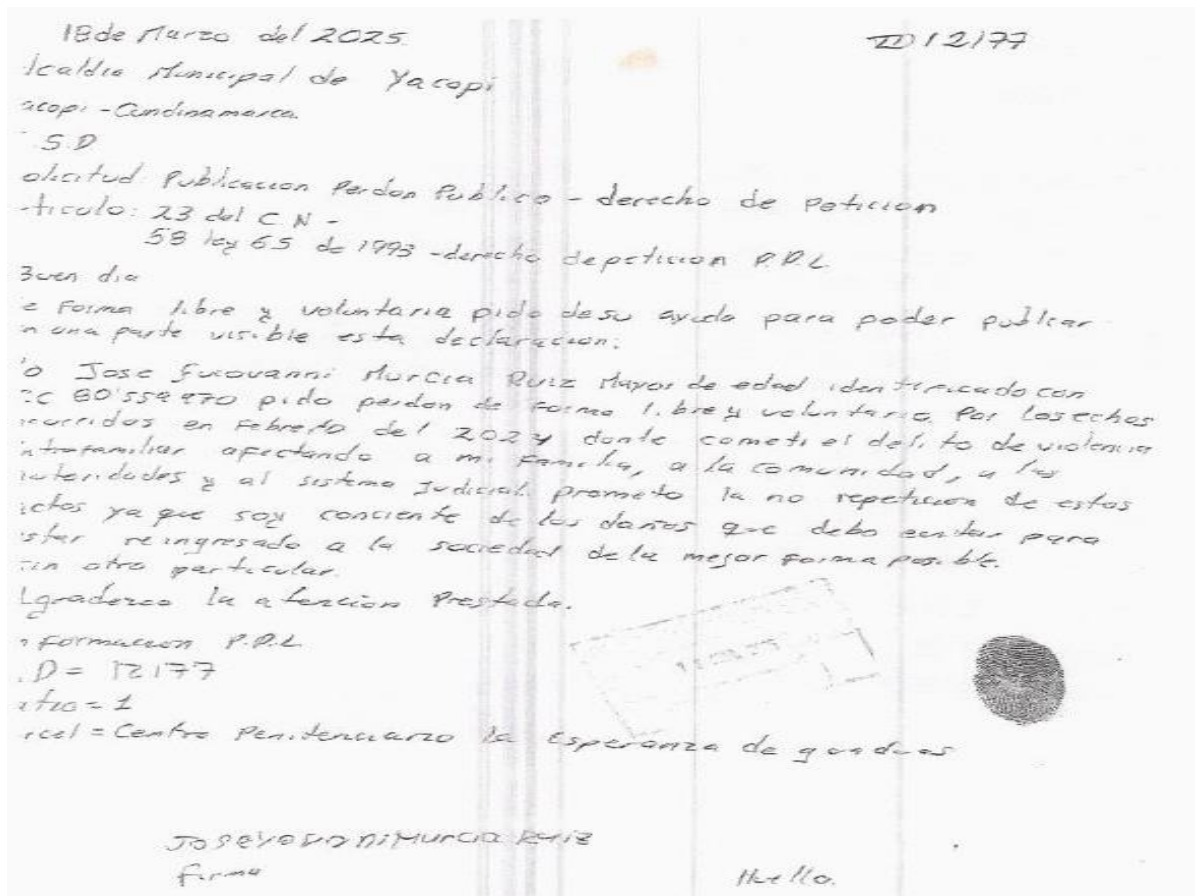 18 de Marzo del 2025. TD 12177
lcaldia Municipal de Yacopi
acopi - Cundinamarca.
S.D
olicitud Publicacion Perdon Publico - derecho de Peticion
ticulo: 23 del C N -
58 ley 65 de 1993 - derecho de peticion P.P.L.
Buen dia
e Forma libre y voluntaria pido de su ayuda para poder publicar
n una parte visible esta declaracion:
o Jose Murcia Ruiz Mayor de edad identificado con
CC pido perdon de forma libre y voluntaria Por los echos
ocurridos en Febrero del 2024 donde cometi el delito de violencia
intrafamiliar afectando a mi familia, a la comunidad, a las
autoridades y al sistema Judicial. prometo la no repeticion de estos
actos ya que soy conciente de los daños que debo evitar para
estar reingresado a la sociedad de la mejor forma posible.
sin otro particular.
Agradezco la atencion Prestada.
nformacion P.P.L
.D = 12177
atio = 1
rcel = Centro Penitenciario la Esperanza de guaduas
Murcia Ruiz
firma Huella.